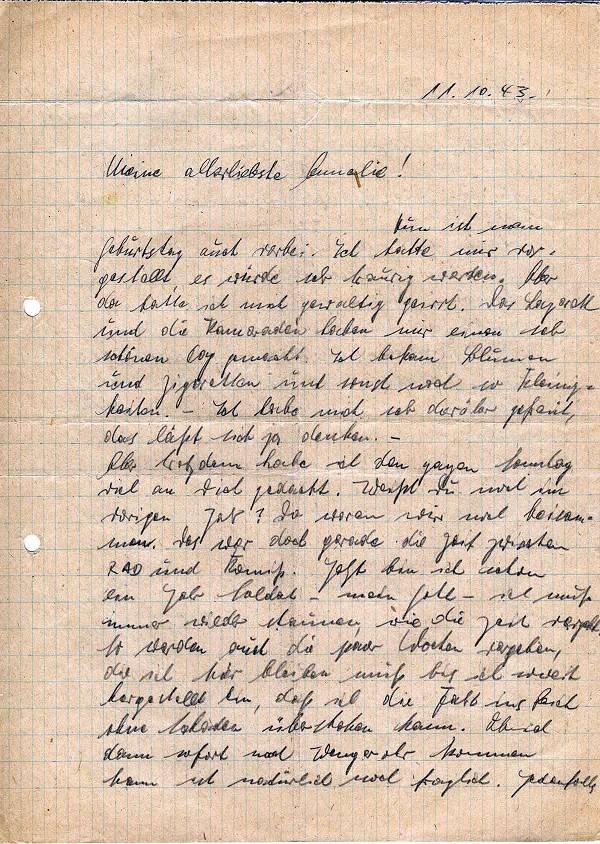 11. 10. 43.
Meine allerliebste Annelie!
Nun ist mein
Geburtstag auch vorbei. Ich hatte mir vor-
gestellt, es würde sehr traurig werden. Aber
da hatte ich mich gewaltig geirrt. Das Lazarett
und die Kameraden haben mir einen sehr
schönen Tag gemacht. Ich bekam Blumen
und Zigaretten und sonst noch so Kleinig-
keiten. - Ich habe mich sehr darüber gefreut,
das läßt sich ja denken. -
Aber trotzdem habe ich den ganzen Sonntag
viel an Dich gedacht. Weißt Du noch im
vorigen Jahr? Da waren wir noch beisam-
men. Das war doch gerade die Zeit zwischen
RAD und Komiß. Jetzt bin ich schon
ein Jahr Soldat - mein Gott - ich muß
immer wieder staunen, wie die Zeit vergeht.
So werden auch die paar Wochen vergehen,
die ich hier bleiben muß bis ich soweit
hergestellt bin, daß ich die Fahrt ins Reich
ohne Schaden überstehen kann. Ob ich
dann sofort nach kommen
kann ist natürlich noch fraglich. Jedenfalls